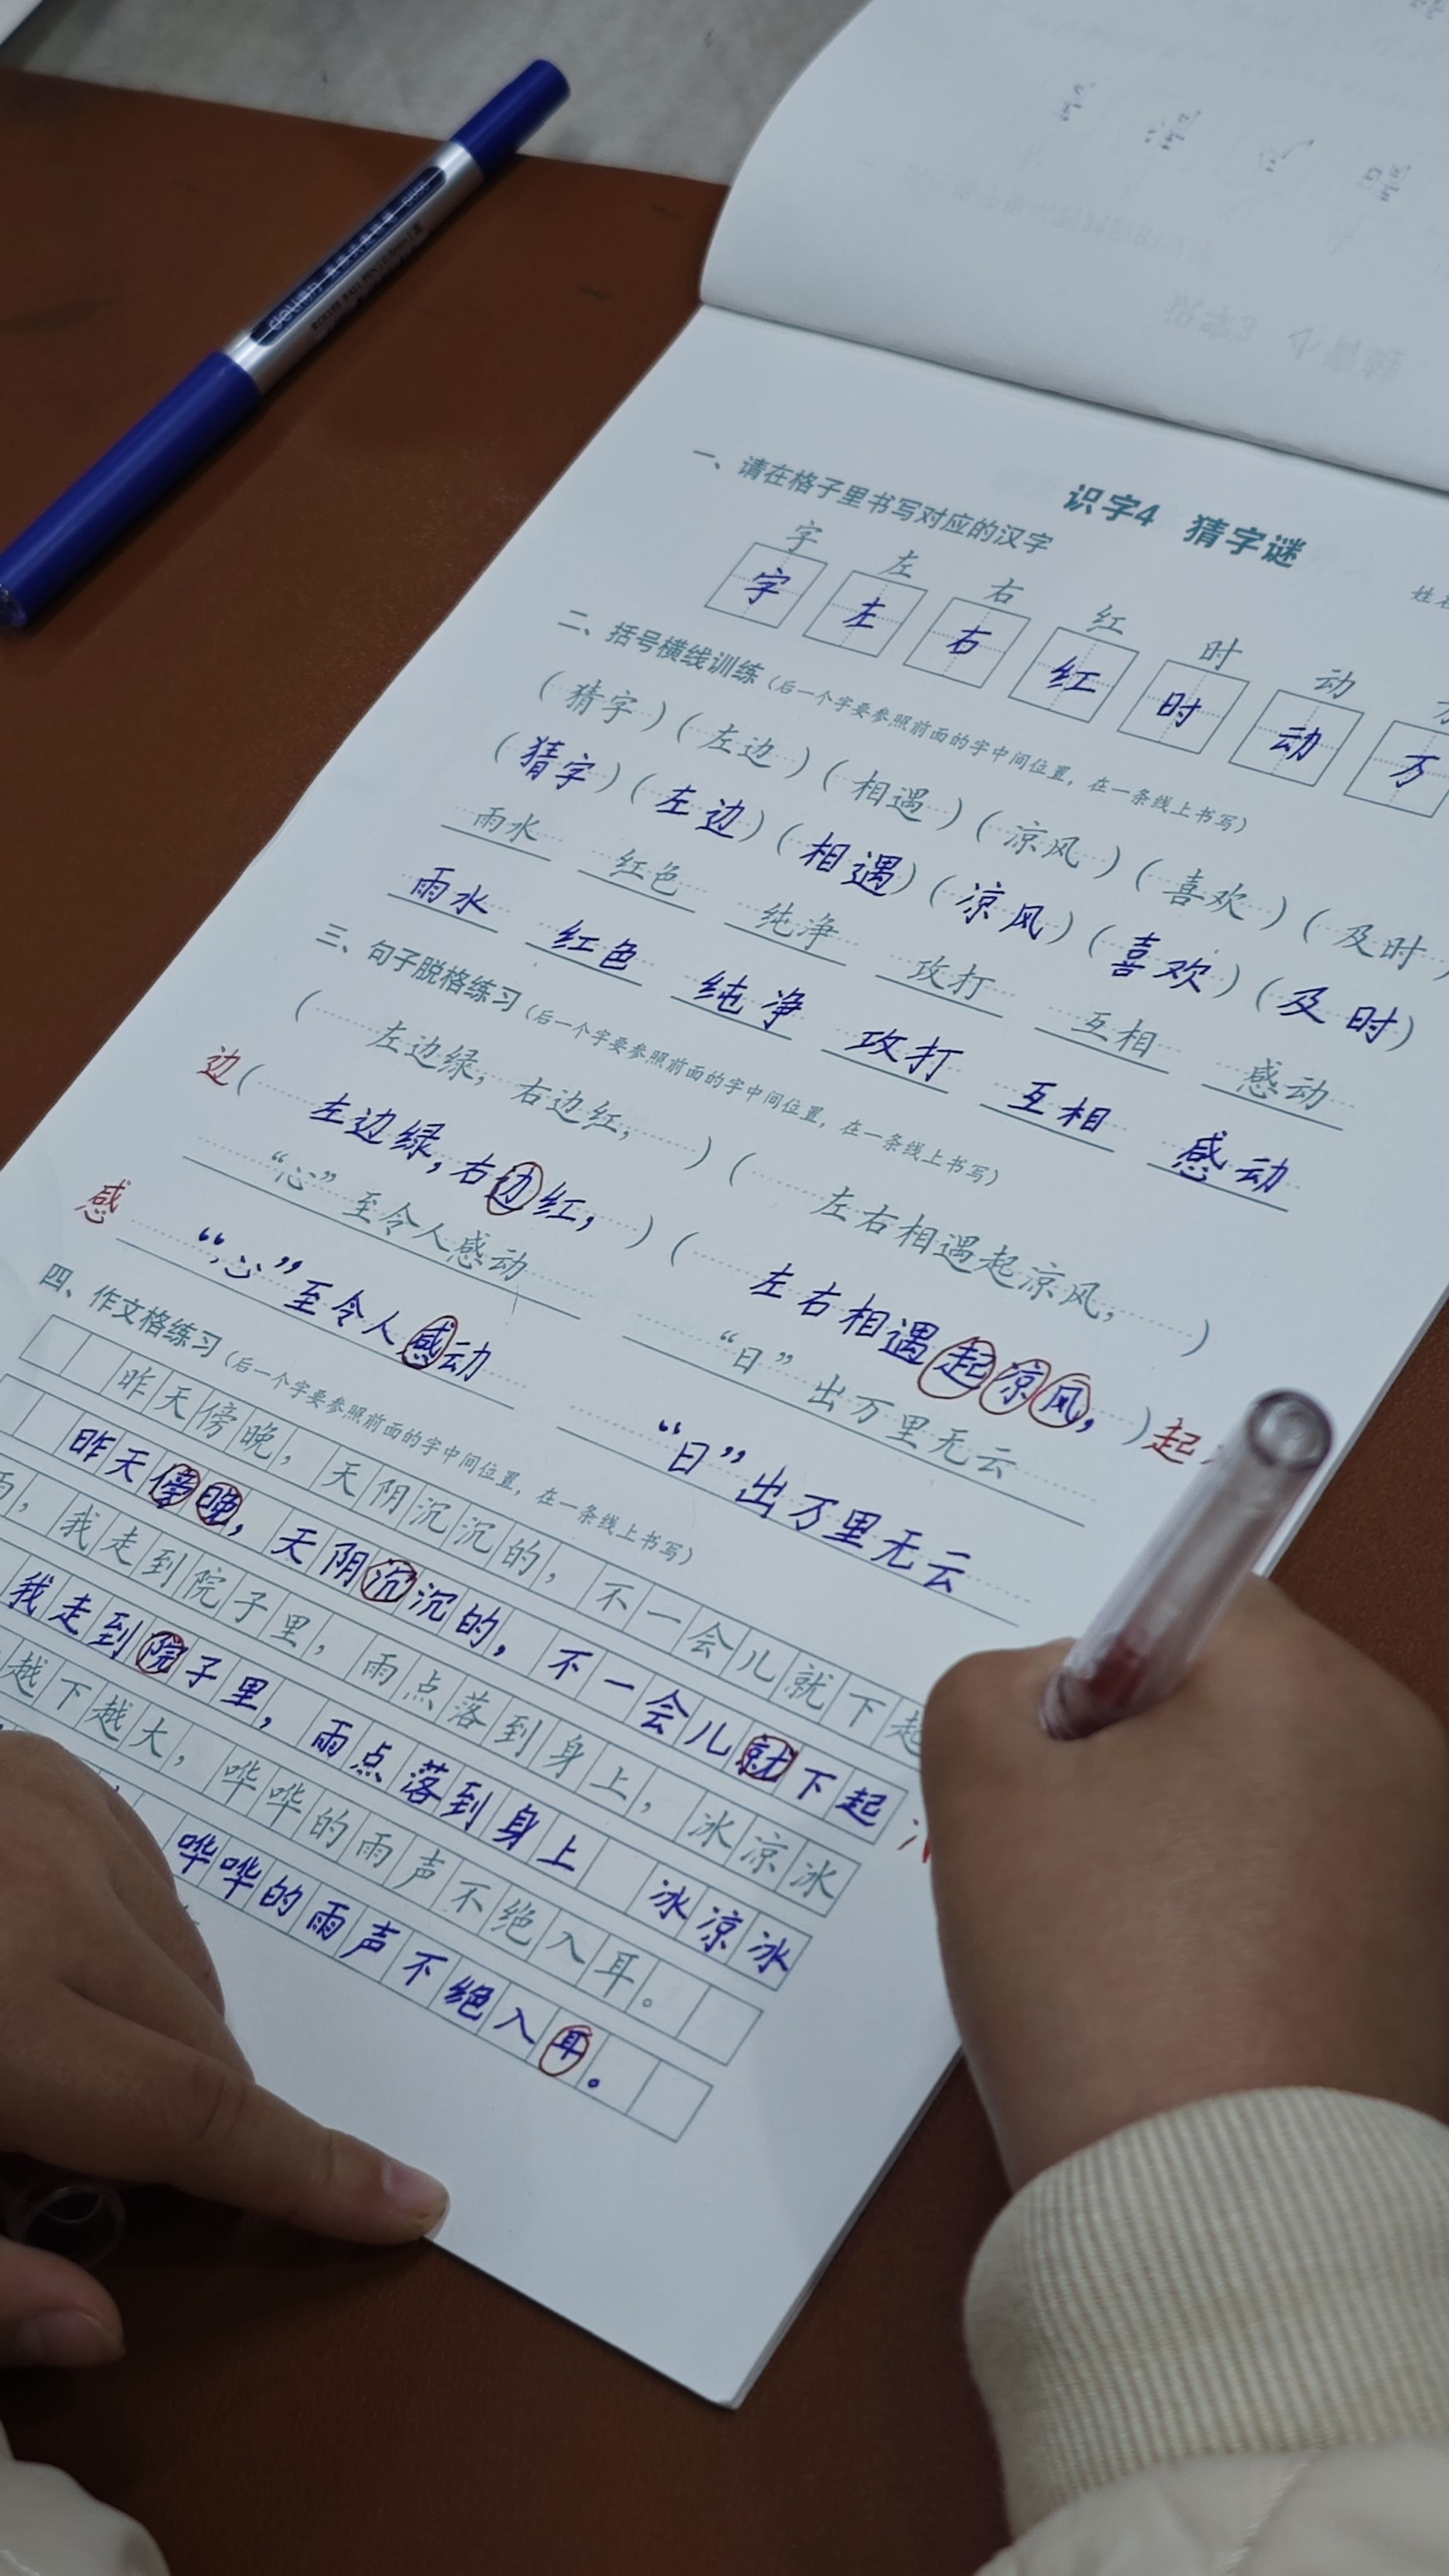 deli
ROLLER BALL PEN
识字4 猜字谜
一、请在格子里书写对应的汉字
字 左 右 红 时 动
字 左 右 红 时 动 万
二、括号横线训练(后一个字要参照前面的字中间位置,在一条线上书写)
(猜字)(左边)(相遇)(凉风)(喜欢)(及时
(猜字)(左边)(相遇)(凉风)(喜欢)(及时)
雨水 红色 纯净 攻打 互相 感动
雨水 红色 纯净 攻打 互相 感动
三、句子脱格练习(后一个字要参照前面的字中间位置,在一条线上书写)
( 左边绿,右边红, )( 左右相遇起凉风, )
边( 左边绿,右边红, )( 左右相遇起凉风, )起
“心”至令人感动 “日”出万里无云
感 “心”至令人感动 “日”出万里无云
四、作文格练习(后一个字要参照前面的字中间位置,在一条线上书写)
昨天傍晚,天阴沉沉的,不一会儿就下起
昨天傍晚,天阴沉沉的,不一会儿就下起
雨,我走到院子里,雨点落到身上,冰凉冰
我走到院子里,雨点落到身上 冰凉冰
越下越大,哗哗的雨声不绝入耳。
哗哗的雨声不绝入耳。